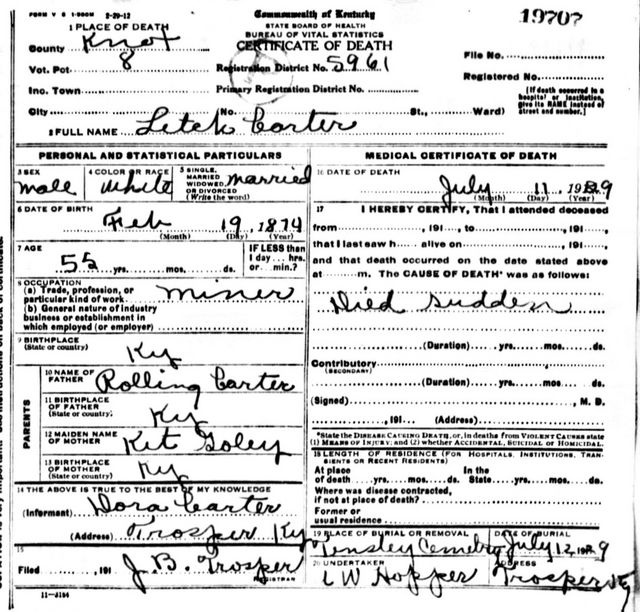 FORM V S 1-500M 2-29-12
Commonwealth of Kentucky
19707
STATE BOARD OF HEALTH
BUREAU OF VITAL STATISTICS
CERTIFICATE OF DEATH
1 PLACE OF DEATH
County Knox
Vot. Pct 8
Inc. Town
City
Registration District No. 5961
Primary Registration District No.
(No. St., Ward)
File No.
Registered No.
[If death occurred in a hospital or institution, give its NAME instead of street and number.]
2 FULL NAME Letch Carter
PERSONAL AND STATISTICAL PARTICULARS
3 SEX male
4 COLOR OR RACE White
5 SINGLE, MARRIED WIDOWED, OR DIVORCED (Write the word) married
6 DATE OF BIRTH
Feb 19, 1874
(Month) (Day) (Year)
7 AGE
55 yrs. mos. ds.
IF LESS than 1 day... hrs. or min.?
8 OCCUPATION
(a) Trade, profession, or particular kind of work miner
(b) General nature of industry business or establishment in which employed (or employer)
9 BIRTHPLACE
(State or country) Ky
PARENTS
10 NAME OF FATHER Rolling Carter
11 BIRTHPLACE OF FATHER (State or country) Ky
12 MAIDEN NAME OF MOTHER Kit Goley
13 BIRTHPLACE OF MOTHER (State or country) Ky
14 THE ABOVE IS TRUE TO THE BEST OF MY KNOWLEDGE
(Informant) Dora Carter
(Address) Trosper Ky
15
Filed , 191 J. B. Trosper
REGISTRAR
11-3184
MEDICAL CERTIFICATE OF DEATH
16 DATE OF DEATH
July 11, 1929
(Month) (Day) (Year)
17 I HEREBY CERTIFY, That I attended deceased
from , 191 , to , 191 ,
that I last saw h alive on , 191 ,
and that death occurred on the date stated above
at m. The CAUSE OF DEATH* was as follows:
Died sudden
(Duration) yrs. mos. ds.
Contributory
(SECONDARY)
(Duration) yrs. mos. ds.
(Signed) , M. D.
, 191 (Address)
*State the DISEASE CAUSING DEATH, or, in deaths from VIOLENT CAUSES state
(1) MEANS OF INJURY; and (2) whether ACCIDENTAL, SUICIDAL or HOMICIDAL.
18 LENGTH OF RESIDENCE (FOR HOSPITALS, INSTITUTIONS, TRANSIENTS OR RECENT RESIDENTS)
At place of death yrs. mos. ds. In the State yrs. mos. ds.
Where was disease contracted,
if not at place of death?
Former or
usual residence
19 PLACE OF BURIAL OR REMOVAL
Tinsley Cemetry
DATE OF BURIAL
July 12, 1929
20 UNDERTAKER
L W Hopper
ADDRESS
Trosper Ky